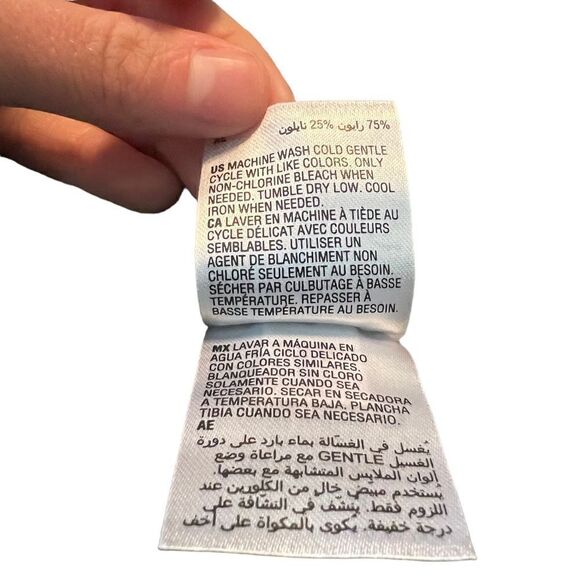 75% رايون %25 نايلون
US MACHINE WASH COLD GENTLE
CYCLE WITH LIKE COLORS. ONLY
NON-CHLORINE BLEACH WHEN
NEEDED. TUMBLE DRY LOW. COOL
IRON WHEN NEEDED.
CA LAVER EN MACHINE À TIÈDE AU
CYCLE DÉLICAT AVEC COULEURS
SEMBLABLES. UTILISER UN
AGENT DE BLANCHIMENT NON
CHLORÉ SEULEMENT AU BESOIN.
SÉCHER PAR CULBUTAGE À BASSE
TEMPÉRATURE. REPASSER À
BASSE TEMPÉRATURE AU BESOIN.
MX LAVAR A MÁQUINA EN
AGUA FRÍA CICLO DELICADO
CON COLORES SIMILARES.
BLANQUEADOR SIN CLORO
SOLAMENTE CUANDO SEA
NECESARIO. SECAR EN SECADORA
A TEMPERATURA BAJA. PLANCHA
TIBIA CUANDO SEA NECESARIO.
AE
يُغسل في الغسّالة بماء بارد على دورة
الغسيل GENTLE مع مراعاة وضع
ألوان الملابس المتشابهة مع بعضها.
يُستخدم مبيض خالٍ من الكلورين عند
اللزوم فقط. يُنشّف في النشّافة على
درجة خفيفة. يُكوى بالمكواة على أخف